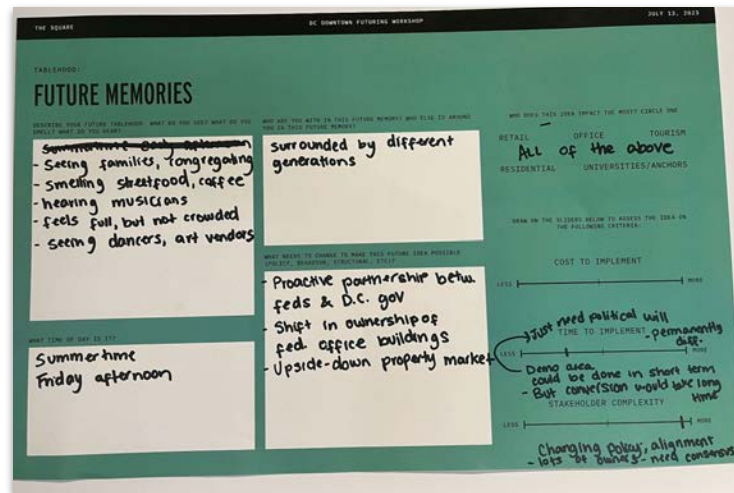 THE SQUARE
DC DOWNTOWN FUTURING WORKSHOP
JULY 13, 2023
TABLEHOOD:
FUTURE MEMORIES
DESCRIBE YOUR FUTURE TABLEHOOD. WHAT DO YOU SEE? WHAT DO YOU
SMELL? WHAT DO YOU HEAR?
summertime early afternoon
- Seeing families, congregating
- smelling streetfood, coffee
- hearing musicians
- feels full, but not crowded
- seeing dancers, art vendors
WHAT TIME OF DAY IS IT?
Summertime
Friday afternoon
WHO ARE YOU WITH IN THIS FUTURE MEMORY? WHO ELSE IS AROUND
YOU IN THIS FUTURE MEMORY?
surrounded by different
generations
WHAT NEEDS TO CHANGE TO MAKE THIS FUTURE IDEA POSSIBLE
(POLICY, BEHAVIOR, STRUCTURAL, ETC)?
- Proactive partnership betw.
feds & D.C. gov
- Shift in ownership of
fed. office buildings
- Upside-down property market
WHO DOES THIS IDEA IMPACT THE MOST? CIRCLE ONE
RETAIL OFFICE TOURISM
ALL of the above
RESIDENTIAL UNIVERSITIES/ANCHORS
DRAW ON THE SLIDERS BELOW TO ASSESS THE IDEA ON
THE FOLLOWING CRITERIA:
COST TO IMPLEMENT
LESS MORE
Just need political will
TIME TO IMPLEMENT
- permanently
diff.
LESS MORE
- Demo area
could be done in short term
- But conversion would take long
time
STAKEHOLDER COMPLEXITY
LESS MORE
Changing policy, alignment
- lots of owners - need consensus